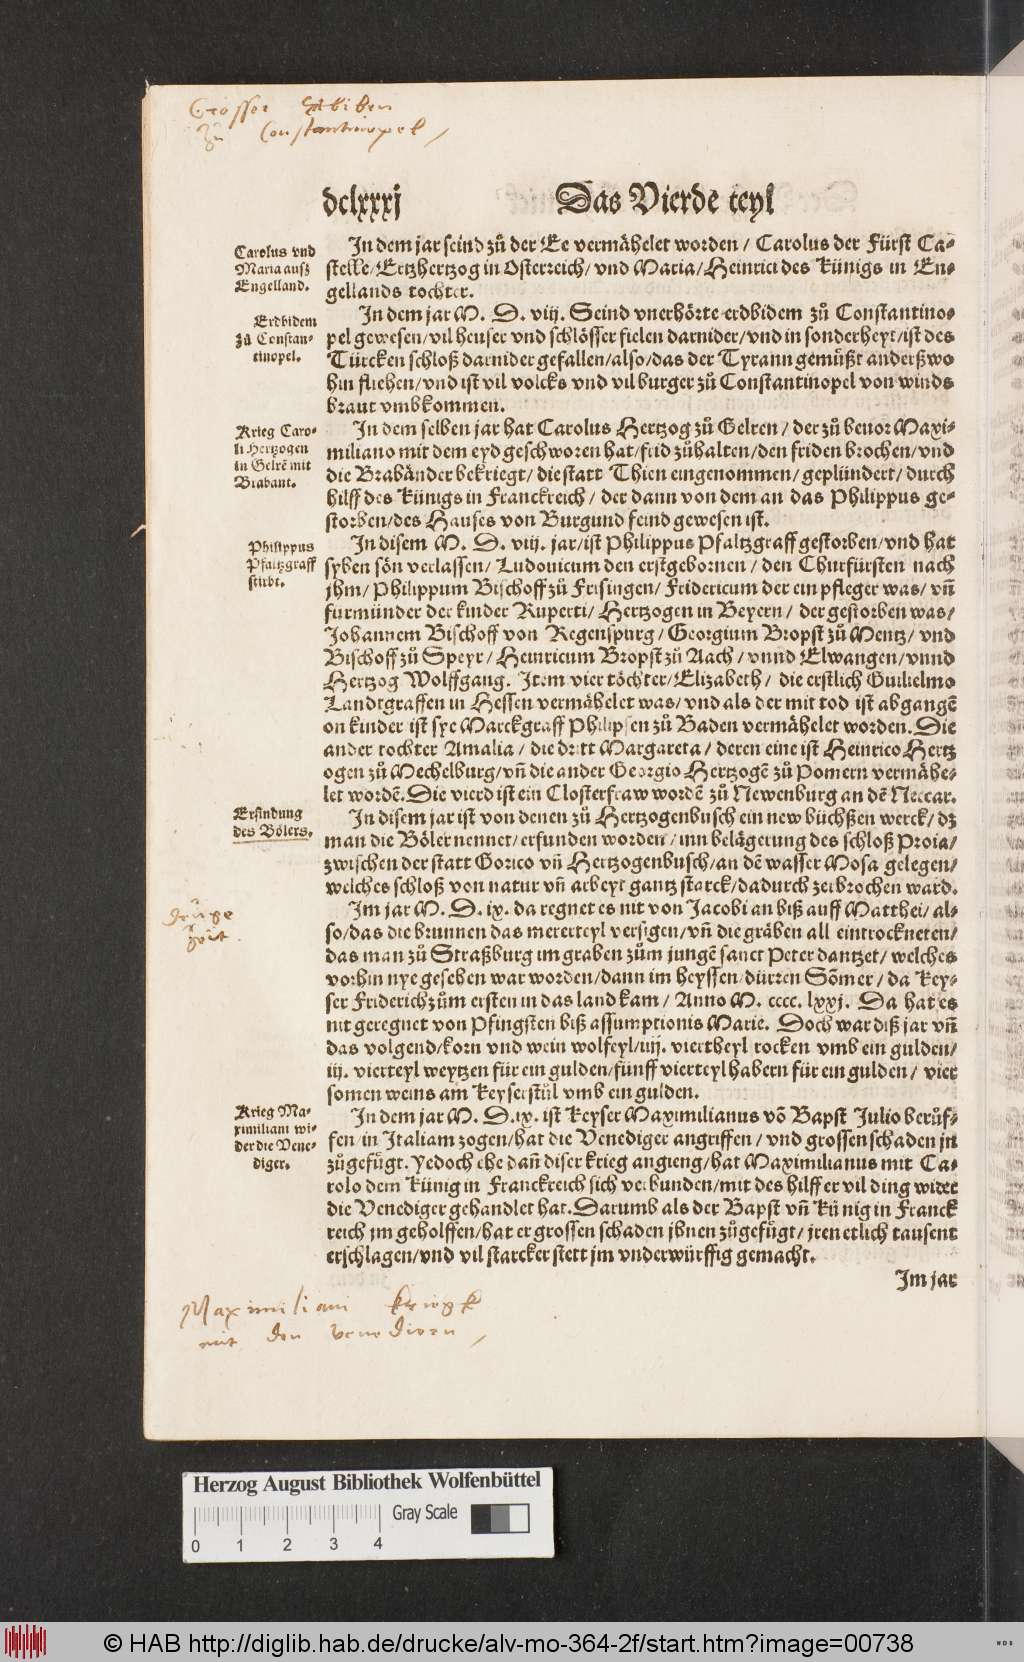 Grosser Erbiben
zů Constantinopel /
dclxxxj Das Vierde teyl
Carolus vnd
Maria ausz
Engelland.
In dem jar seind zů der Ee vermåhelet worden / Carolus der Fürst Ca⸗
stelle / Ertzhertzog in Osterreich / vnd Maria / Heinrici des Künigs in En⸗
gellands tochter.
Erdbidem
zů Constan⸗
tinopel.
In dem jar M. D. viij. Seind vnerhörte erdbidem zů Constantino⸗
pel gewesen / vil heuser vnd schlösser fielen darnider / vnd in sonderheyt / ist des
Türcken schloß darnider gefallen / also / das der Tyrann gemůßt anderßwo
hin fliehen / vnd ist vil volcks vnd vil burger zů Constantinopel von winds
braut vmbkommen.
Krieg Caro⸗
li Hertzogen
in Gelrē mit
Brabant.
In dem selben jar hat Carolus Hertzog zů Gelren / der zů beuor Maxi⸗
miliano mit dem eyd geschworen hat / frid zůhalten / den friden brochen / vnd
die Brabånder bekriegt / die statt Thien eingenommen / geplündert / durch
hilff des Künigs in Franckreich / der dann von dem an das Philippus ge⸗
storben / des Hauses von Burgund feind gewesen ist.
Philippus
Pfaltzgraff
stirbt.
In disem M. D. viij. jar / ist Philippus Pfaltzgraff gestorben / vnd hat
syben sön verlassen / Ludouicum den erstgebornen / den Churfürsten nach
jhm / Philippum Bischoff zů Frisingen / Fridericum der ein pfleger was / vñ
furmünder der kinder Ruperti / Hertzogen in Beyern / der gestorben was /
Johannem Bischoff von Regenspurg / Georgium Bropst zů Mentz / vnd
Bischoff zů Speyr / Heinricum Bropst zů Aach / vnnd Elwangen / vnnd
Hertzog Wolffgang. Item vier töchter / Elizabeth / die erstlich Guilielmo
Landtgraffen in Hessen vermåhelet was / vnd als der mit tod ist abgangē
on kinder ist sye Marckgraff Philipsen zů Baden vermåhelet worden. Die
ander tochter Amalia / die dritt Margareta / deren eine ist Heinrico Hertz
ogen zů Mechelburg / vñ die ander Georgio Hertzogē zů Pomern vermåhe⸗
let wordē. Die vierd ist ein Closterfraw wordē zů Newenburg an dē Neccar.
Erfindung
des Bölers.
In disem jar ist von denen zů Hertzogenbusch ein new büchßen werck / dz
man die Böler nennet / erfunden worden / inn belågerung des schloß Proia /
zwischen der statt Gorico vñ Hertzogenbusch / an dē wasser Mosa gelegen /
welches schloß von natur vñ arbeyt gantz starck / dadurch zerbrochen ward.
drůge
zeit.
Im jar M. D. ix. da regnet es nit von Jacobi an biß auff Matthei / al⸗
so / das die brunnen das mererteyl versigen / vñ die gråben all eintrockneten /
das man zů Straßburg im graben zům jungē sanct Peter dantzet / welches
vorhin nye gesehen war worden / dann im heyssen dürren Sömer / da Key⸗
ser Friderich zům ersten in das land kam / Anno M. cccc. lxxj. Da hat es
nit geregnet von Pfingsten biß assumptionis Marie. Doch war diß jar vñ
das volgend / korn vnd wein wolfeyl / iiij. viertheyl rocken vmb ein gulden /
iij. vierteyl weytzen für ein gulden / fünff vierteyl habern für ein gulden / vier
somen weins am Keyserstůl vmb ein gulden.
Krieg Ma⸗
ximiliani wi⸗
der die Vene⸗
diger.
In dem jar M. D. ix. ist Keyser Maximilianus vō Bapst Julio berůf⸗
fen / in Italiam zogen / hat die Venediger angriffen / vnd grossen schaden jn
zůgefůgt. Yedoch ehe dañ diser krieg angieng / hat Maximilianus mit Ca⸗
rolo dem Künig in Franckreich sich verbunden / mit des hilff er vil ding wider
die Venediger gehandlet hat. Darumb als der Bapst vñ Künig in Franck
reich jm geholffen / hat er grossen schaden jhnen zůgefůgt / jren etlich tausent
erschlagen / vnd vil starcker stett jm vnderwürffig gemacht.
Im jar
Maximiliani kriegk
mit den venedigern /
Herzog August Bibliothek Wolfenbüttel
Gray Scale
0 1 2 3 4
© HAB http://diglib.hab.de/drucke/alv-mo-364-2f/start.htm?image=00738